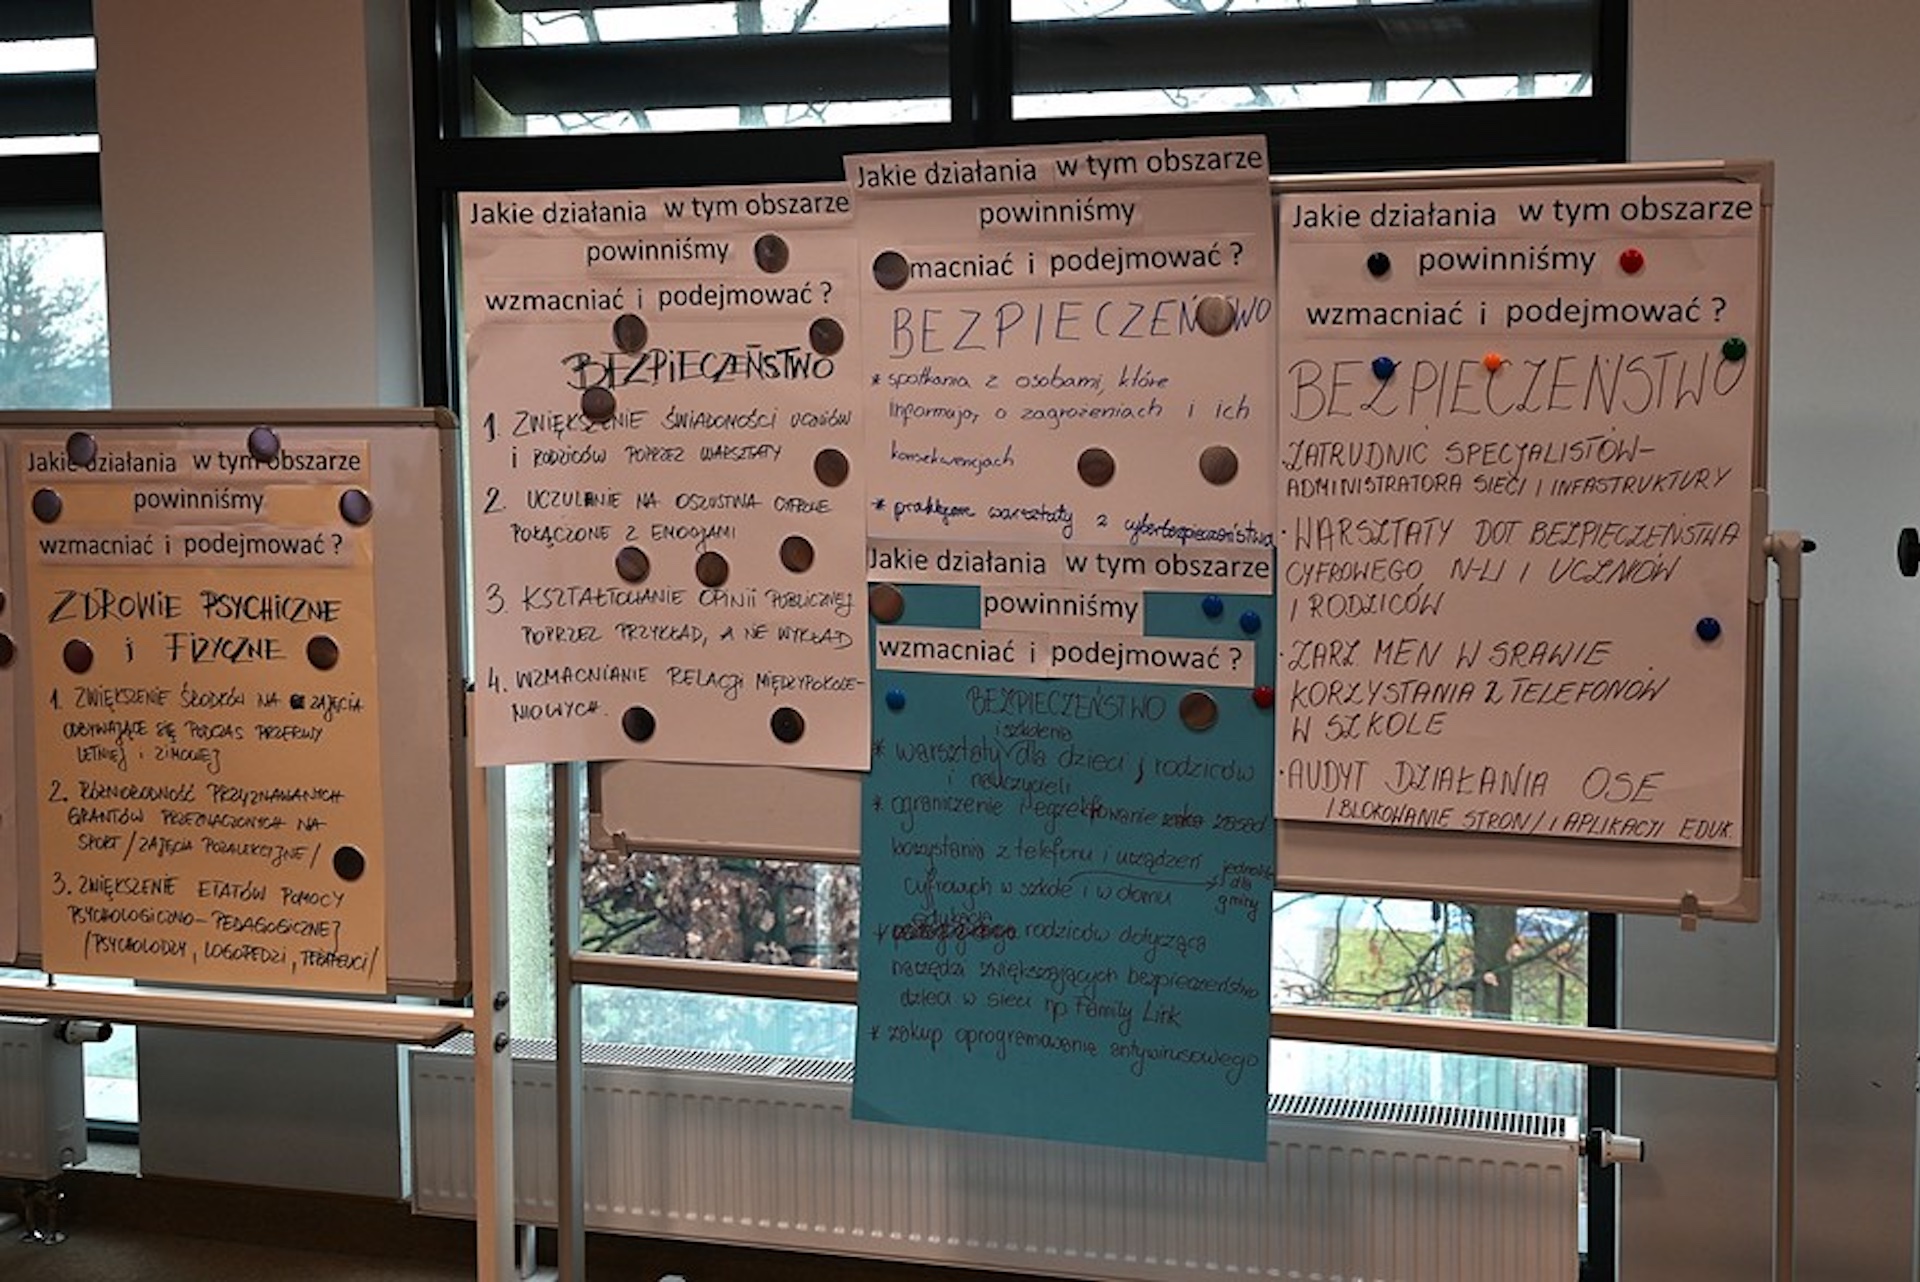 Jakie działania w tym obszarze
powinniśmy
wzmacniać i podejmować ?
ZDROWIE PSYCHICZNE
i FIZYCZNE
1. ZWIĘKSZENIE ŚRODKÓW NA ZAJĘCIA
ODBYWAJĄCE SIĘ PODCZAS PRZERWY
LETNIEJ i ZIMOWEJ
2. RÓŻNORODNOŚĆ PRZYZNAWANYCH
GRANTÓW PRZEZNACZONYCH NA
SPORT / ZAJĘCIA POZALEKCYJNE /
3. ZWIĘKSZENIE ETATÓW POMOCY
PSYCHOLOGICZNO-PEDAGOGICZNEJ
/PSYCHOLODZY, LOGOPEDZI, TERAPEUCI/
Jakie działania w tym obszarze
powinniśmy
wzmacniać i podejmować ?
BEZPIECZEŃSTWO
1. ZWIĘKSZENIE ŚWIADOMOŚCI UCZNIÓW
i RODZICÓW POPRZEZ WARSZTATY
2. UCZULENIE NA OSZUSTWA CYFROWE
POŁĄCZONE Z EMOCJAMI
3. KSZTAŁTOWANIE OPINII PUBLICZNEJ
POPRZEZ PRZYKŁAD, A NE WYKŁAD
4. WZMACNIANIE RELACJI MIĘDZYPOKOLE-
NIOWYCH.
Jakie działania w tym obszarze
powinniśmy
macniać i podejmować ?
BEZPIECZEŃSTWO
* spotkania z osobami, które
informują o zagrożeniach i ich
konsekwencjach
* praktyczne warsztaty z cyberbezpieczeństwa
Jakie działania w tym obszarze
powinniśmy
wzmacniać i podejmować ?
BEZPIECZEŃSTWO
i szkolenia
* warsztaty dla dzieci, rodziców
i nauczycieli
* ograniczenie i egzekfowanie zasad
korzystania z telefonu i urządzeń
cyfrowych w szkole i w domu
jednolite
dla
gminy
edukacja
rodziców dotycząca
narzędzi zwiększających bezpieczeństwo
dzieci w sieci np Family Link
* zakup oprogramowania antywirusowego
Jakie działania w tym obszarze
powinniśmy
wzmacniać i podejmować ?
BEZPIECZEŃSTWO
ZATRUDNIĆ SPECJALISTÓW-
ADMINISTRATORA SIECI I INFASTRUKTURY
· WARSZTATY DOT BEZPIECZEŃSTWA
CYFROWEGO N-LI I UCZNÓW
I RODZICÓW
· ZARZ MEN W SRAWIE
KORZYSTANIA Z TELEFONÓW
W SZKOLE
· AUDYT DZIAŁANIA OSE
/BLOKOWANIE STRON/ I APLIKACJI EDUK.